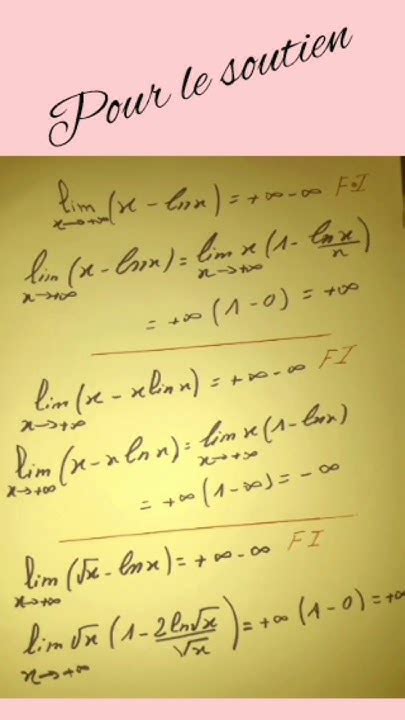 Pour le soutien
lim (x - ln x) = +∞ - ∞ F.I
x→+∞
lim (x - ln x) = lim x (1 - ln x / x)
x→+∞ x→+∞
= +∞ (1 - 0) = +∞
lim (x - x ln x) = +∞ - ∞ FI
x→+∞
lim (x - x ln x) = lim x (1 - ln x)
x→+∞ x→+∞
= +∞ (1 - ∞) = -∞
lim (√x - ln x) = +∞ - ∞ FI
x→+∞
lim √x (1 - 2 ln √x / √x) = +∞ (1 - 0) = +∞
x→+∞